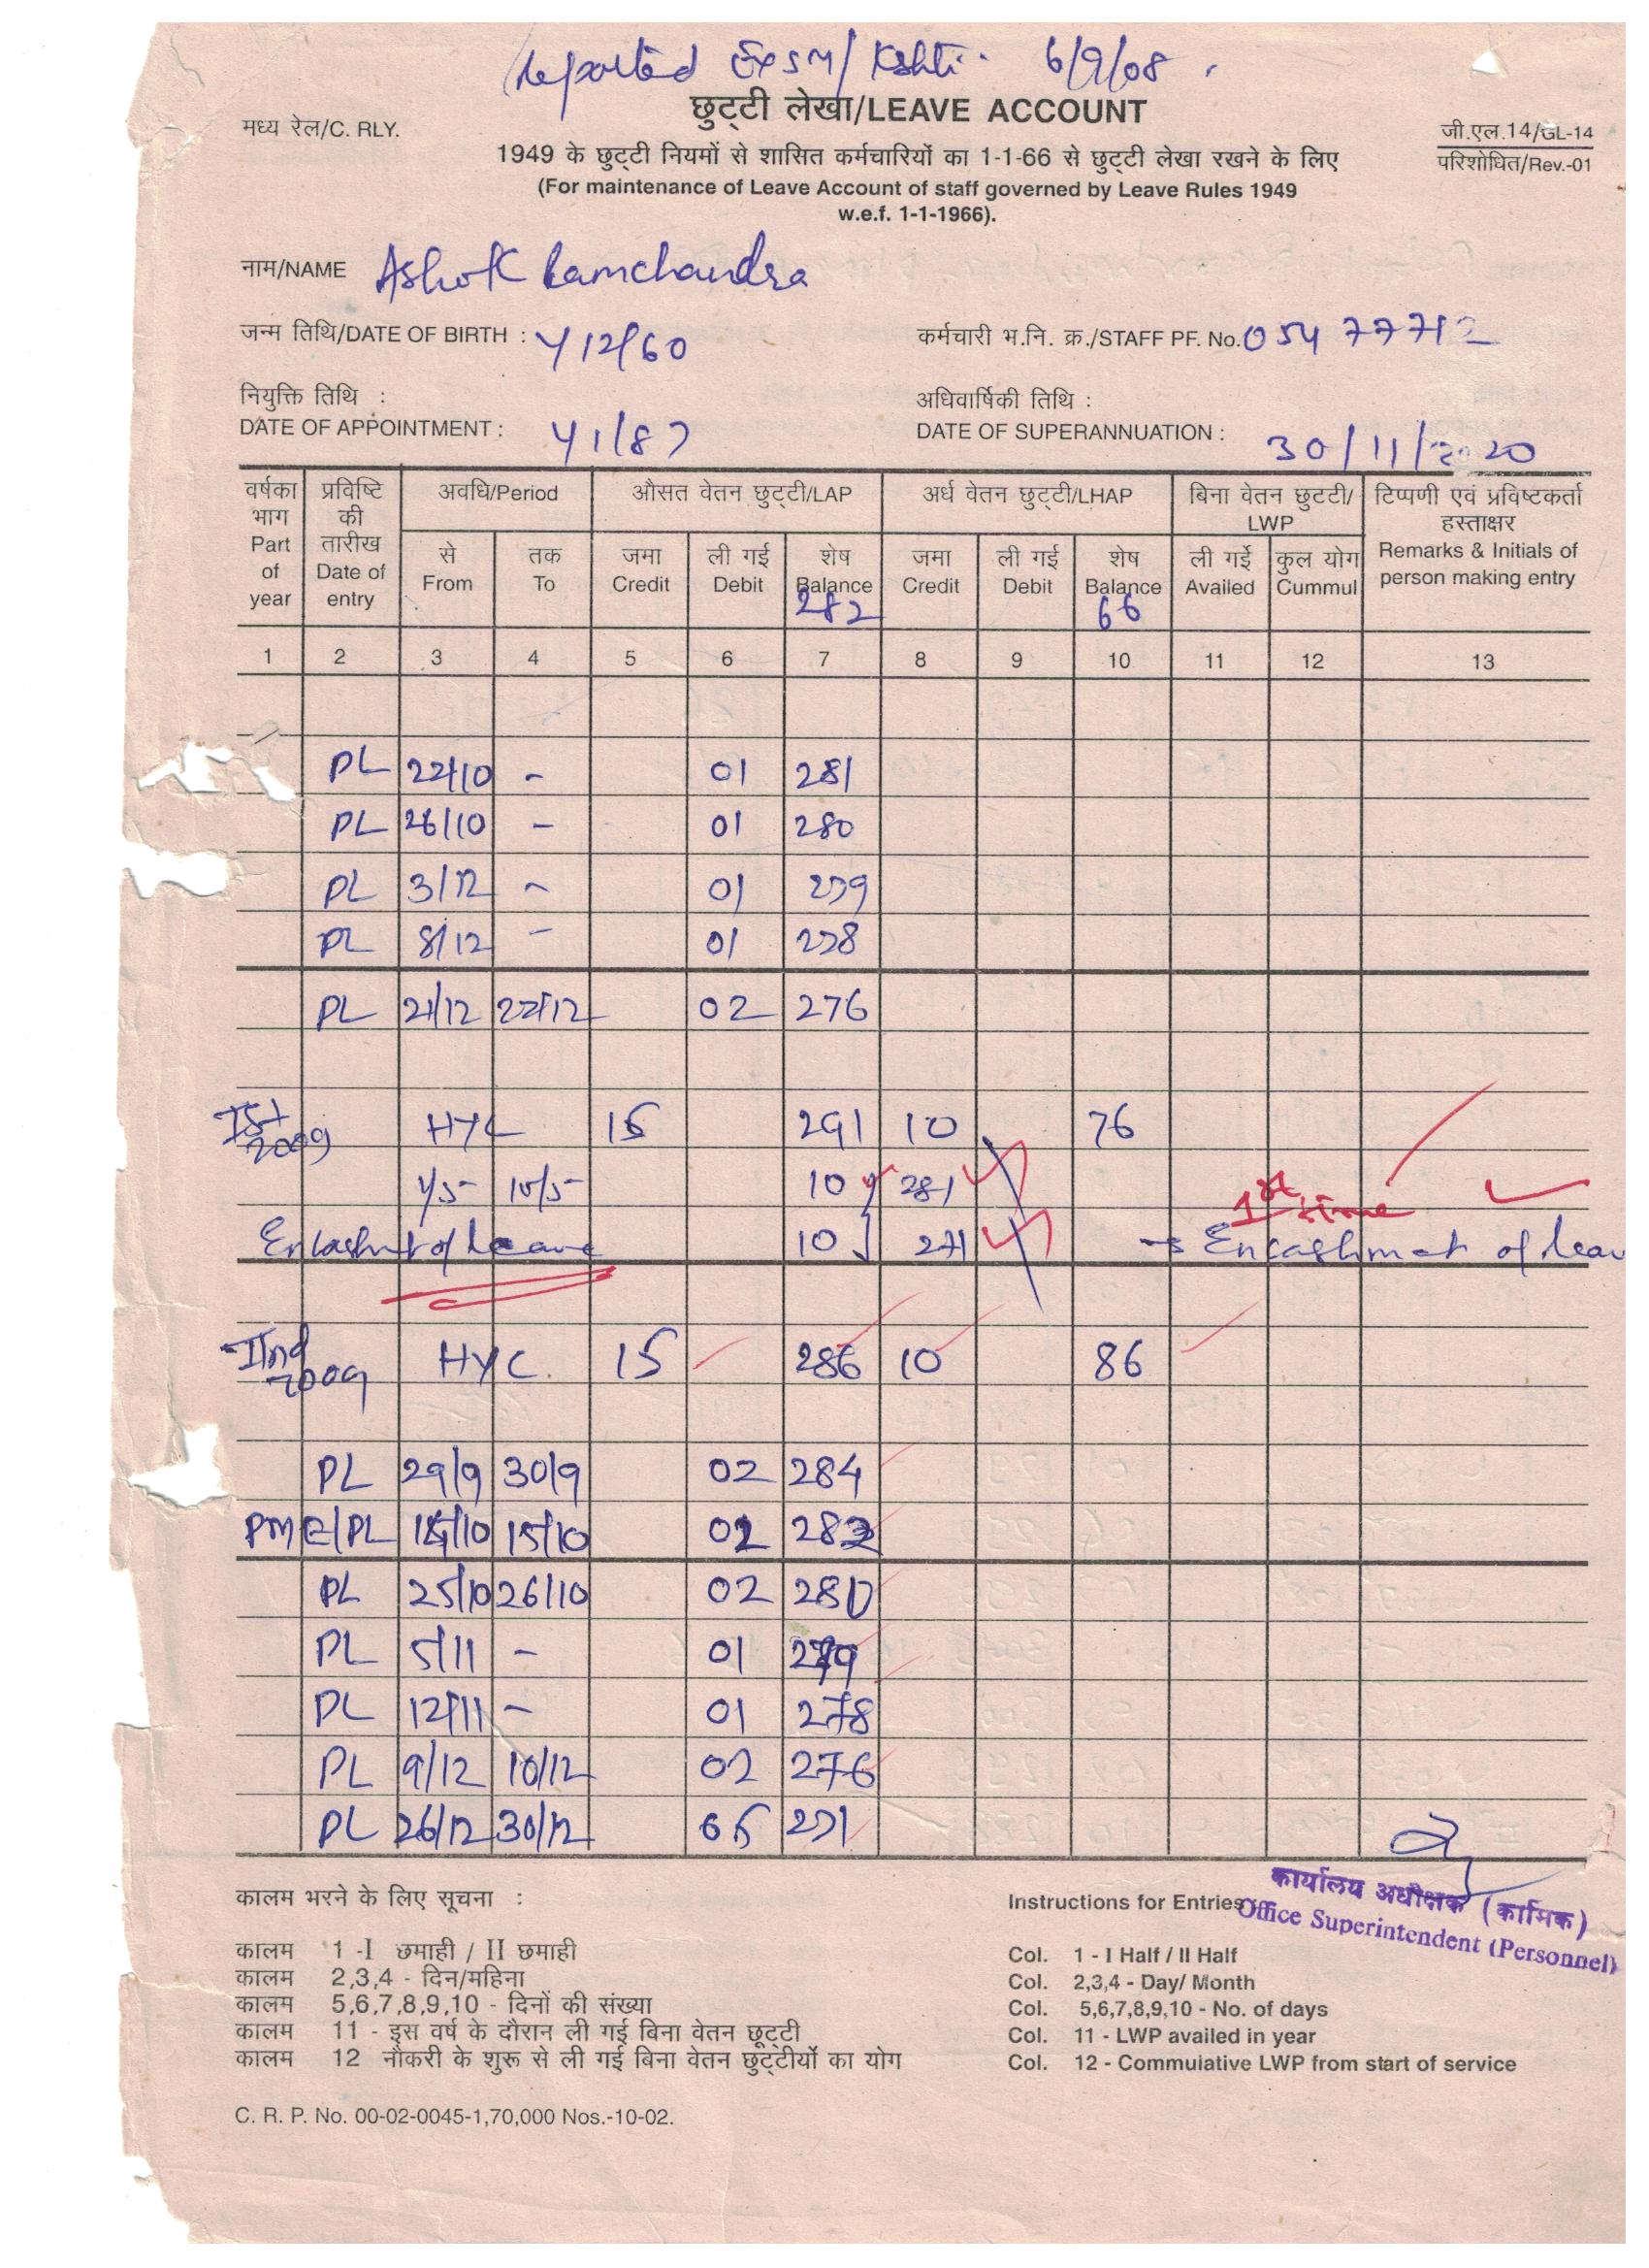 Reported Ex SM/Kshti. 6/9/08.
छुट्टी लेखा/LEAVE ACCOUNT
मध्य रेल/C. RLY.
जी.एल.14/GL-14
परिशोधित/Rev.-01
1949 के छुट्टी नियमों से शासित कर्मचारियों का 1-1-66 से छुट्टी लेखा रखने के लिए
(For maintenance of Leave Account of staff governed by Leave Rules 1949
w.e.f. 1-1-1966).
नाम/NAME Ashok Ramchandra
जन्म तिथि/DATE OF BIRTH : 1/12/60 कर्मचारी भ.नि. क्र./STAFF PF. No. 05477712
नियुक्ति तिथि : अधिवार्षिकी तिथि :
DATE OF APPOINTMENT : 1/1/87 DATE OF SUPERANNUATION : 30/11/2020
वर्षका भाग Part of year प्रविष्टि की तारीख Date of entry अवधि/Period औसत वेतन छुट्टी/LAP अर्ध वेतन छुट्टी/LHAP बिना वेतन छुटटी/LWP टिप्पणी एवं प्रविष्टकर्ता हस्ताक्षर Remarks & Initials of person making entry
से From तक To जमा Credit ली गई Debit शेष Balance जमा Credit ली गई Debit शेष Balance ली गई Availed कुल योग Cummul
282 66
1 2 3 4 5 6 7 8 9 10 11 12 13
PL 22/10 - 01 281
PL 26/10 - 01 280
PL 3/12 - 01 279
PL 8/12 - 01 278
PL 21/12 22/12 02 276
Ist 2009 HYC 15 291 10 76
1/5 10/5 10 281
1st time
Encashmt of Leave 10 271 → Encashment of leav
IInd 2009 HYC. 15 286 10 86
PL 29/9 30/9 02 284
PME/PL 14/10 15/10 02 282
PL 25/10 26/10 02 280
PL 5/11 - 01 279
PL 12/11 - 01 278
PL 9/12 10/12 02 276
PL 26/12 30/12 05 271
कार्यालय अधीक्षक (कार्मिक)
Office Superintendent (Personnel)
कालम भरने के लिए सूचना :
कालम 1 -I छमाही / II छमाही
कालम 2,3,4 - दिन/महिना
कालम 5,6,7,8,9,10 - दिनों की संख्या
कालम 11 - इस वर्ष के दौरान ली गई बिना वेतन छूट्टी
कालम 12 नौकरी के शुरू से ली गई बिना वेतन छुट्टीयों का योग
Instructions for Entries
Col. 1 - I Half / II Half
Col. 2,3,4 - Day/ Month
Col. 5,6,7,8,9,10 - No. of days
Col. 11 - LWP availed in year
Col. 12 - Commulative LWP from start of service
C. R. P. No. 00-02-0045-1,70,000 Nos.-10-02.